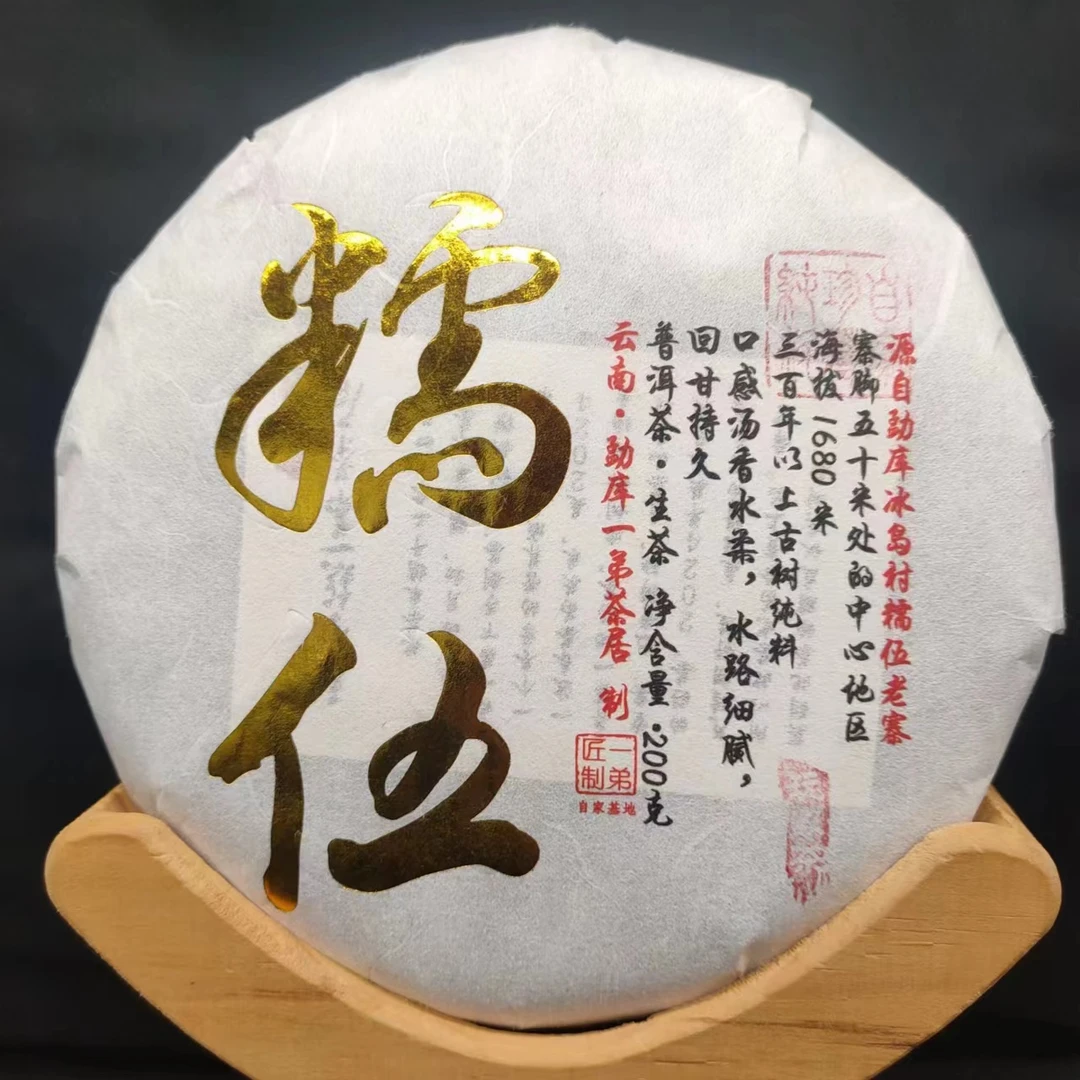 糯伍
源自勐库冰岛村糯伍老寨
寨脚五十米处的中心地区
海拔1680米
三百年以上古树纯料
口感汤香水柔，水路细腻，
回甘持久
普洱茶·生茶 净含量·200克
云南·勐库一弟茶居 制
一弟
匠制
自家基地